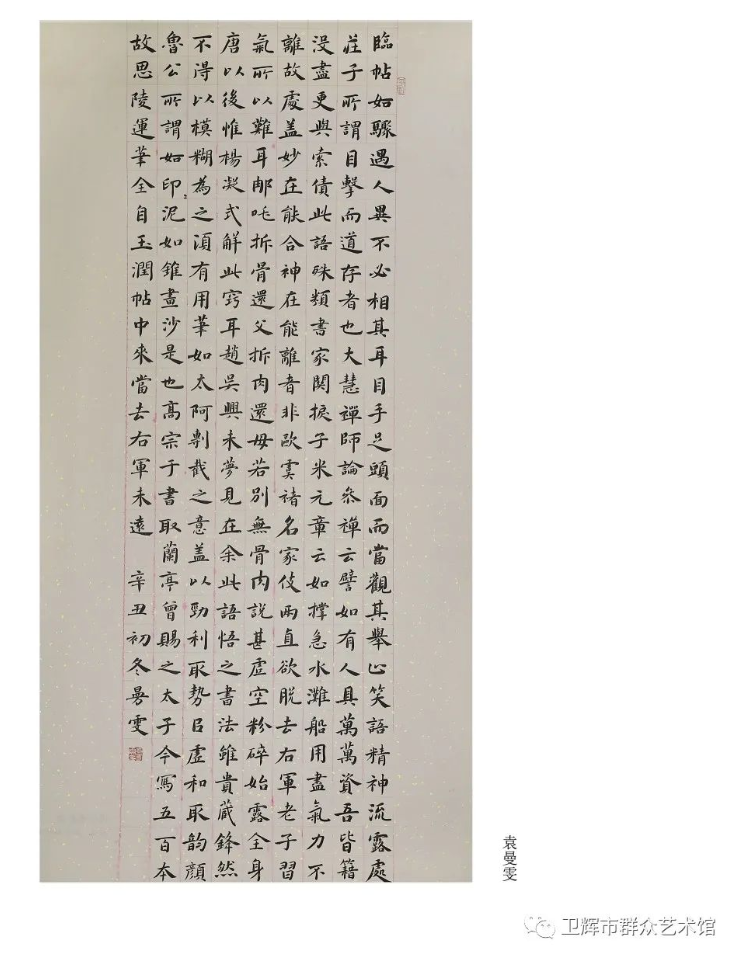 臨帖如驟遇人異不必相其耳目手足頭面而當觀其舉止笑語精神流露處
莊子所謂目擊而道存者也大慧禪師論參禪云譬如有人具萬萬資吾皆籍
沒盡更與索債此語殊類書家関捩子米元章云如撑急水灘船用盡氣力不
離故處盖妙在能合神在能離者非欧虞褚名家伎兩直欲脱去右軍老子習
氣所以難耳那吒拆骨還父拆肉還母若別無骨肉説甚虛空粉碎始露全身
唐以後惟楊凝式解此竅耳趙吳興未夢見在余此語悟之書法雖貴蔵鋒然
不得以模糊為之須有用筆如太阿剸截之意盖以勁利取勢以虛和取韵顔
魯公所謂如印印泥如錐畫沙是也高宗于書取蘭亭曾賜之太子令寫五百本
故思陵運筆全自玉潤帖中來當去右軍未遠 辛丑初冬曼雯
袁曼雯
卫辉市群众艺术馆